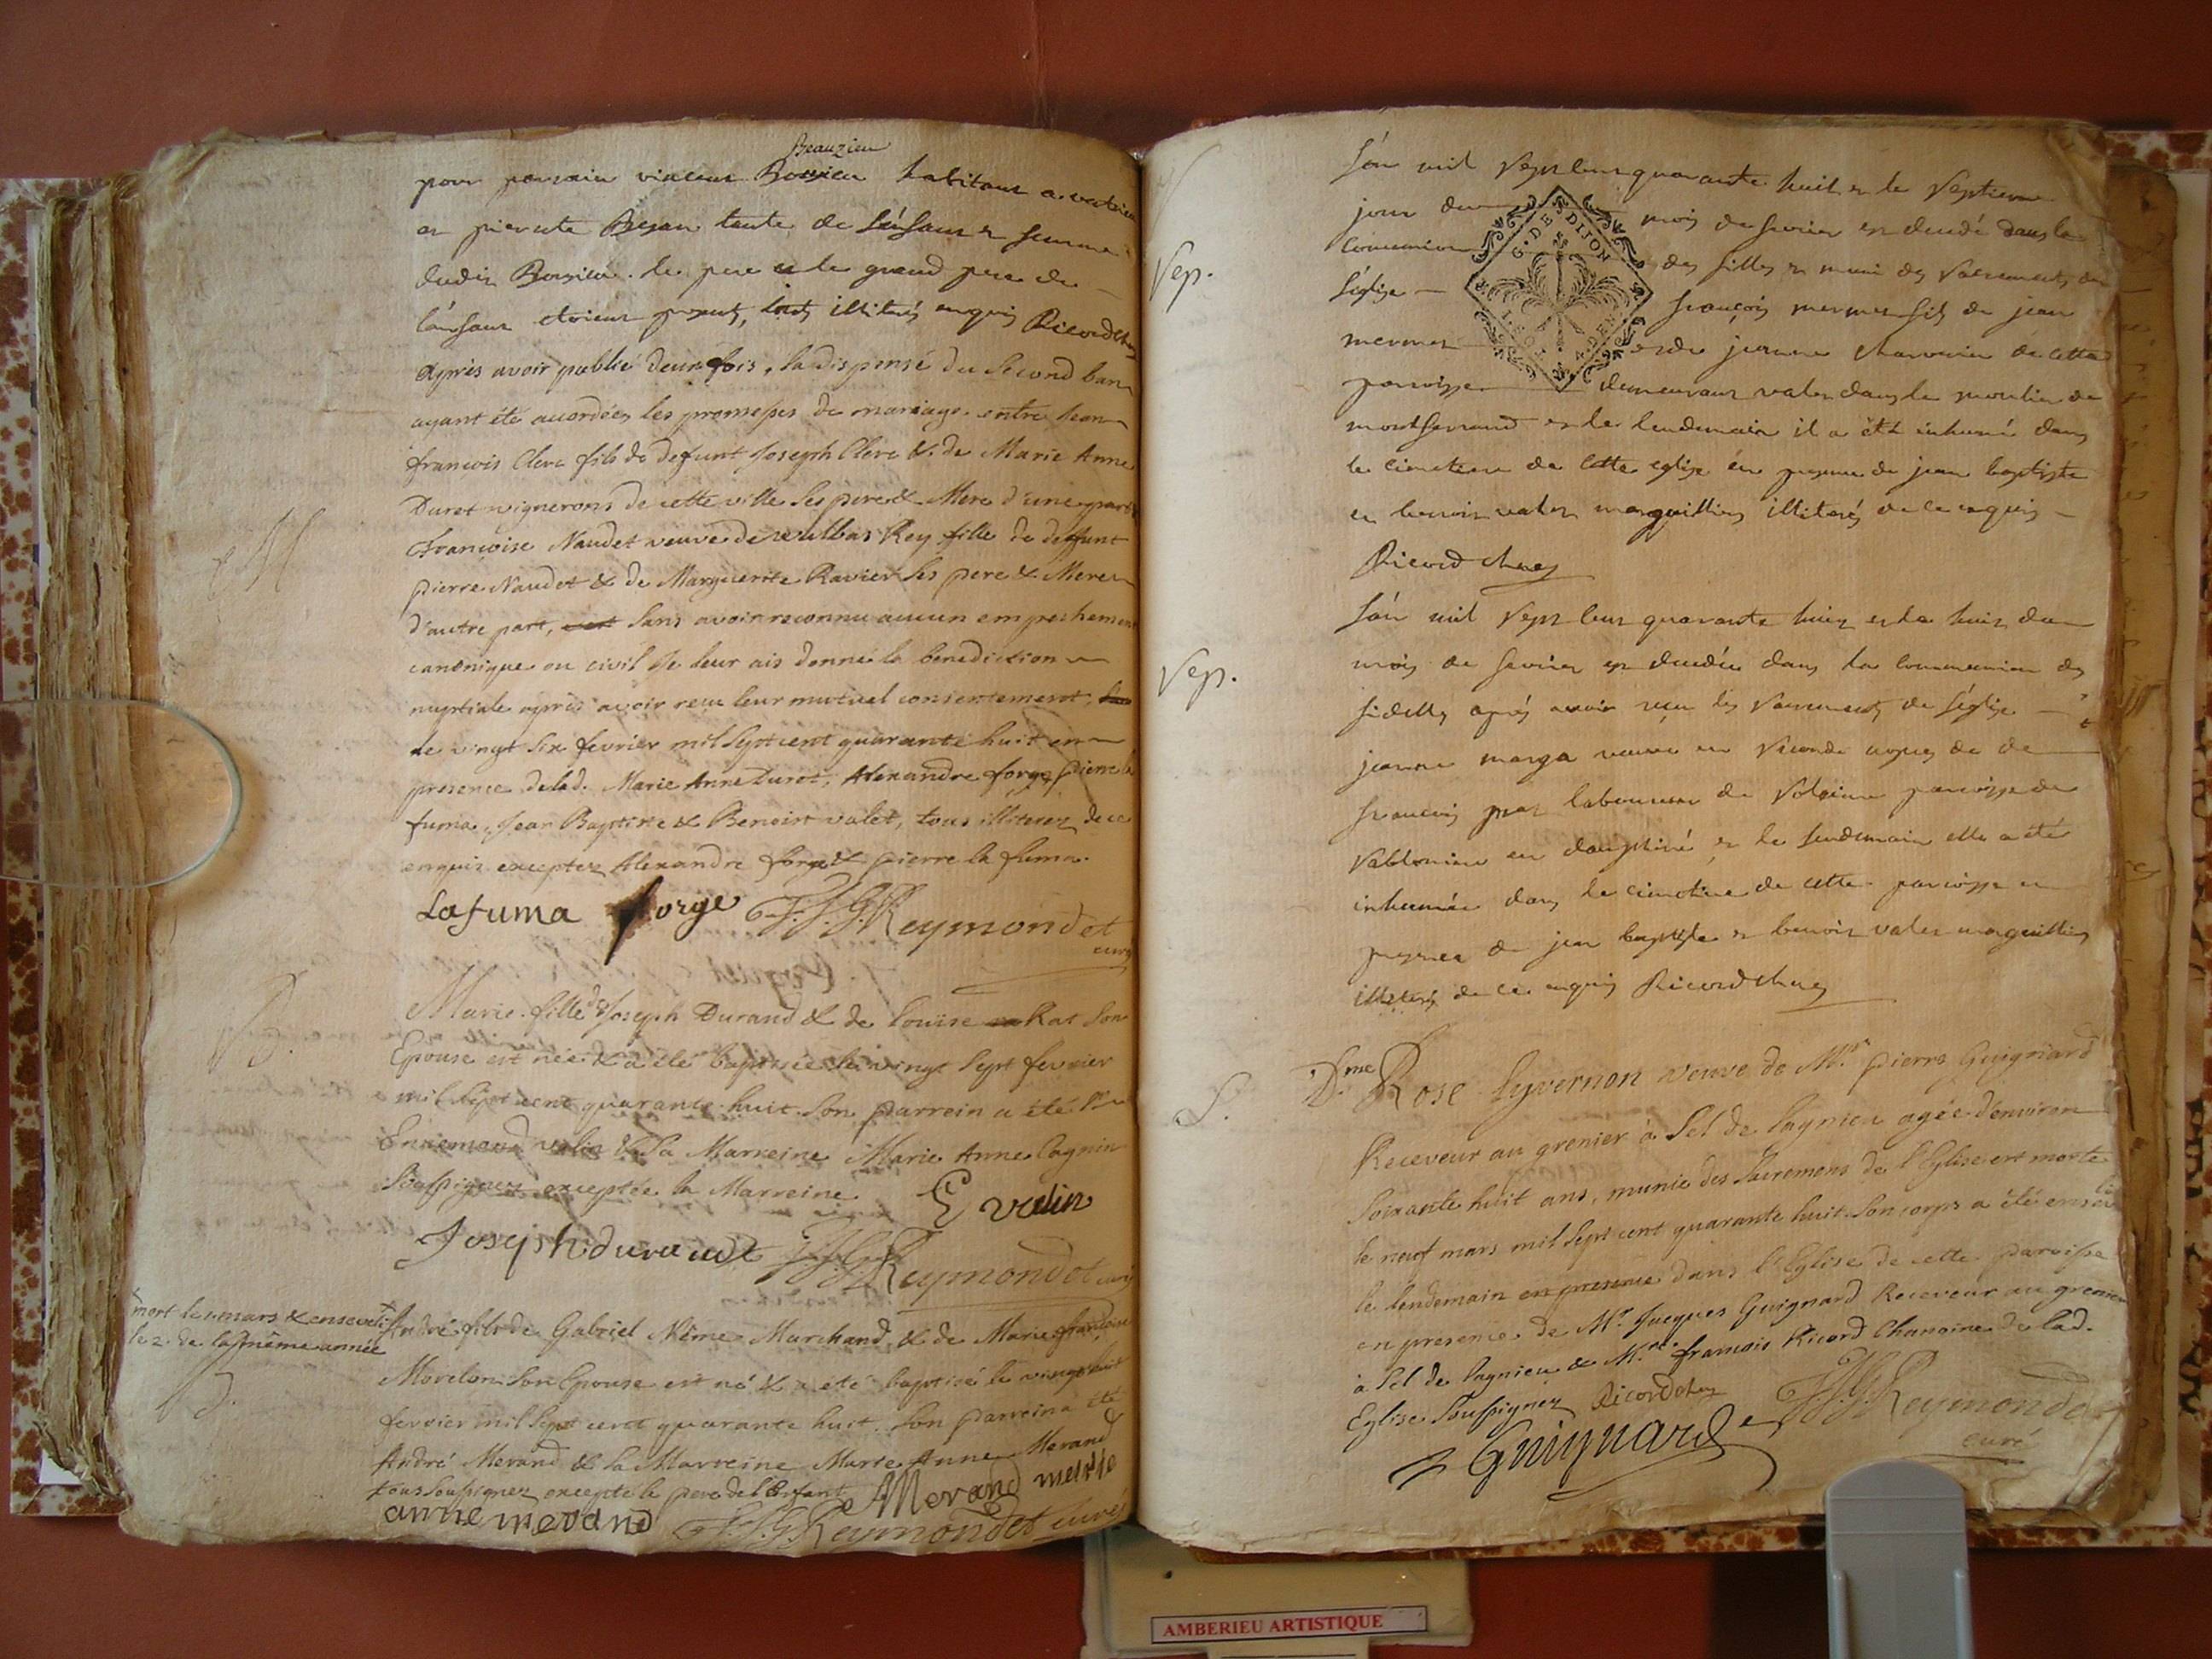 Beauzieu
pour parrain vincent Bossieu habitant a
et pierrette tante de l'enfant et femme
dudit le pere et le grand pere de
l'enfant etoient presents, tous illiterés enquis Ricord chne
Après avoir publié deux fois, la dispense du second ban
ayant été accordée, les promesses de mariage entre Jean
françois Clerc fils de defunt Joseph Clerc & de Marie Anne
Duret vignerons de cette ville ses pere & Mere d'une part &
françoise Naudet veuve de Rey fille de deffunt
pierre Naudet & de Marguerite Ravier ses pere & Mere
d'autre part, sans avoir reconnu aucun empechement
canonique ou civil Je leur ais donné la benediction
nuptiale après avoir reçu leur mutuel consentement,
le vingt six fevrier mil sept cent quarante huit en
presence de lad. Marie Anne Duret, Alexandre forge, pierre la
fuma, Jean Baptiste & Benoist valet, tous illiterez de ce
enquis exceptez Alexandre forge & pierre la fuma.
Lafuma forge F.J.G. Reymondet
curé
B. Marie fille de Joseph Durand & de Louise Rat son
Epouse est née & a été baptisée le vingt sept fevrier
mil sept cent quarante huit. Son parrein a été Sr
Ennemond valin & sa Marreine Marie Anne Cagnin
Soussignez exceptée la Marreine E valin
Joseph durand F.J.G. Reymondet curé
mort le 1 mars & enseveli
le 2 de la même année
B. André fils de Gabriel Même Marchand & de Marie françoise
Morelon son Epouse est né & a eté baptisé le vingt huit
fevrier mil sept cent quarante huit. Son parrein a été
André Merand & la Marreine Marie Anne Merand
tous soussignez excepté le pere de l'Enfant A Merand marie
anne merand F.J.G. Reymondet curé
Sep.
l'an mil sept cent quarante huit et le septieme
jour du mois de fevrier est decedé dans la
communion des filles et muni des sacrements de
l'église françois mermet fils de jean
mermet et de jeanne charvin de cette
paroisse demeurant valet dans le moulin de
montferrand et le lendemain il a été inhumé dans
le cimetiere de cette eglise en presence de jean baptiste
et benoit valet marguilliers illiterés de ce enquis
Ricord chne
G. DE DIJON
Sep.
l'an mil sept cent quarante huit et le huit du
mois de fevrier est decedée dans la communion des
fidelles après avoir reçu les sacrements de l'église
jeanne marga veuve en seconde noces de
françois laboureur de paroisse de
en dauphiné et le lendemain elle a été
inhumée dans le cimetiere de cette paroisse en
presence de jean baptiste et benoit valet marguilliers
illiterés de ce enquis Ricord chne
S. Dme Rose Lyvernon veuve de Mr pierre Guignard
Receveur au grenier à Sel de Lagnieu agée d'environ
soixante huit ans, munie des Sacremens de l'Eglise est morte
le neuf mars mil sept cent quarante huit. Son corps a été enseveli
le lendemain en presence dans l'Eglise de cette paroisse
en presence de Mr Jacques Guignard Receveur au grenier
à Sel de Lagnieu & Mre françois Ricord Chanoine de lad.
Eglise Soussignez Ricord chne F.J.G. Reymondet
Guignard curé
AMBERIEU ARTISTIQUE